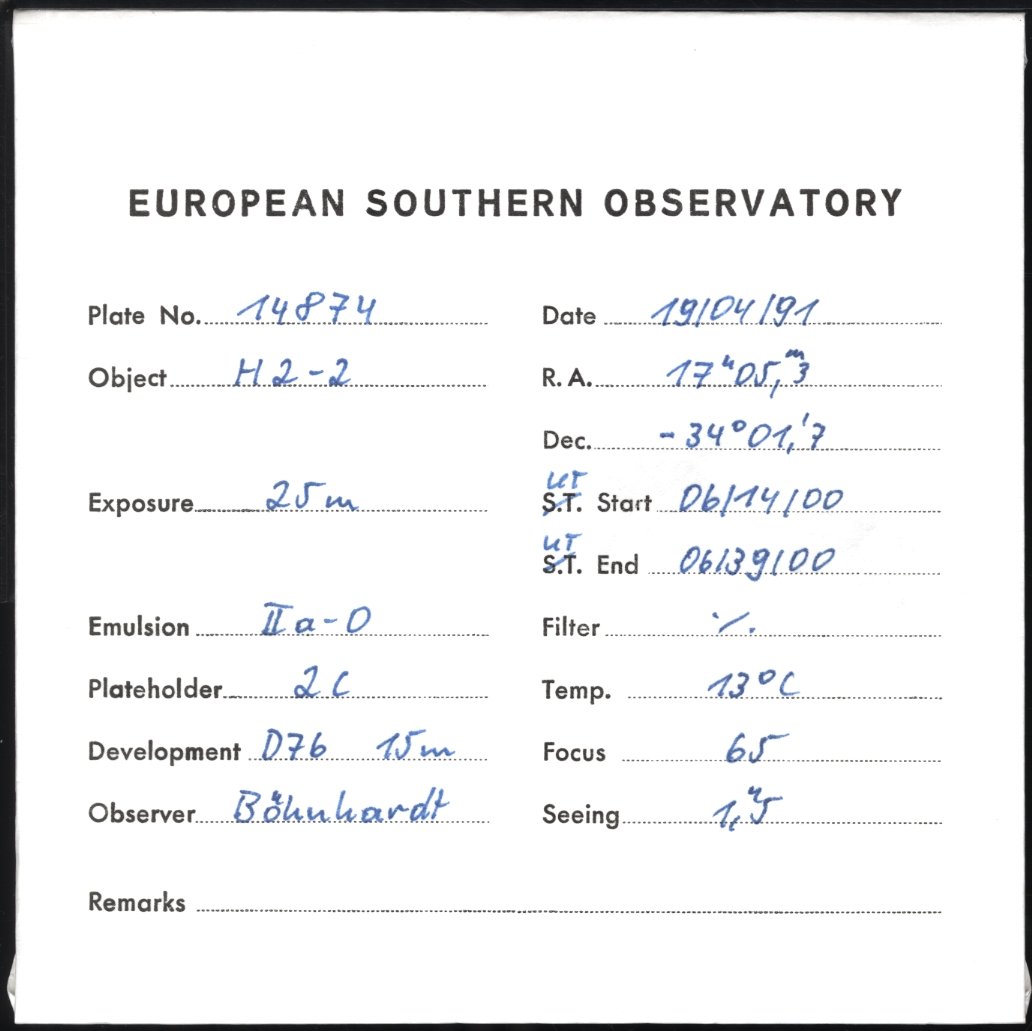 EUROPEAN SOUTHERN OBSERVATORY
Plate No. 14874 Date 19/04/91
Object H2-2 R.A. 17ʰ05,ᵐ3
Dec. -34°01,'7
UT
Exposure 25m S.T. Start 06/14/00
UT
S.T. End 06/39/00
Emulsion IIa-O Filter ·/.
Plateholder 2C Temp. 13°C
Development D76 15m Focus 65
Observer Böhnhardt Seeing 1,"5
Remarks